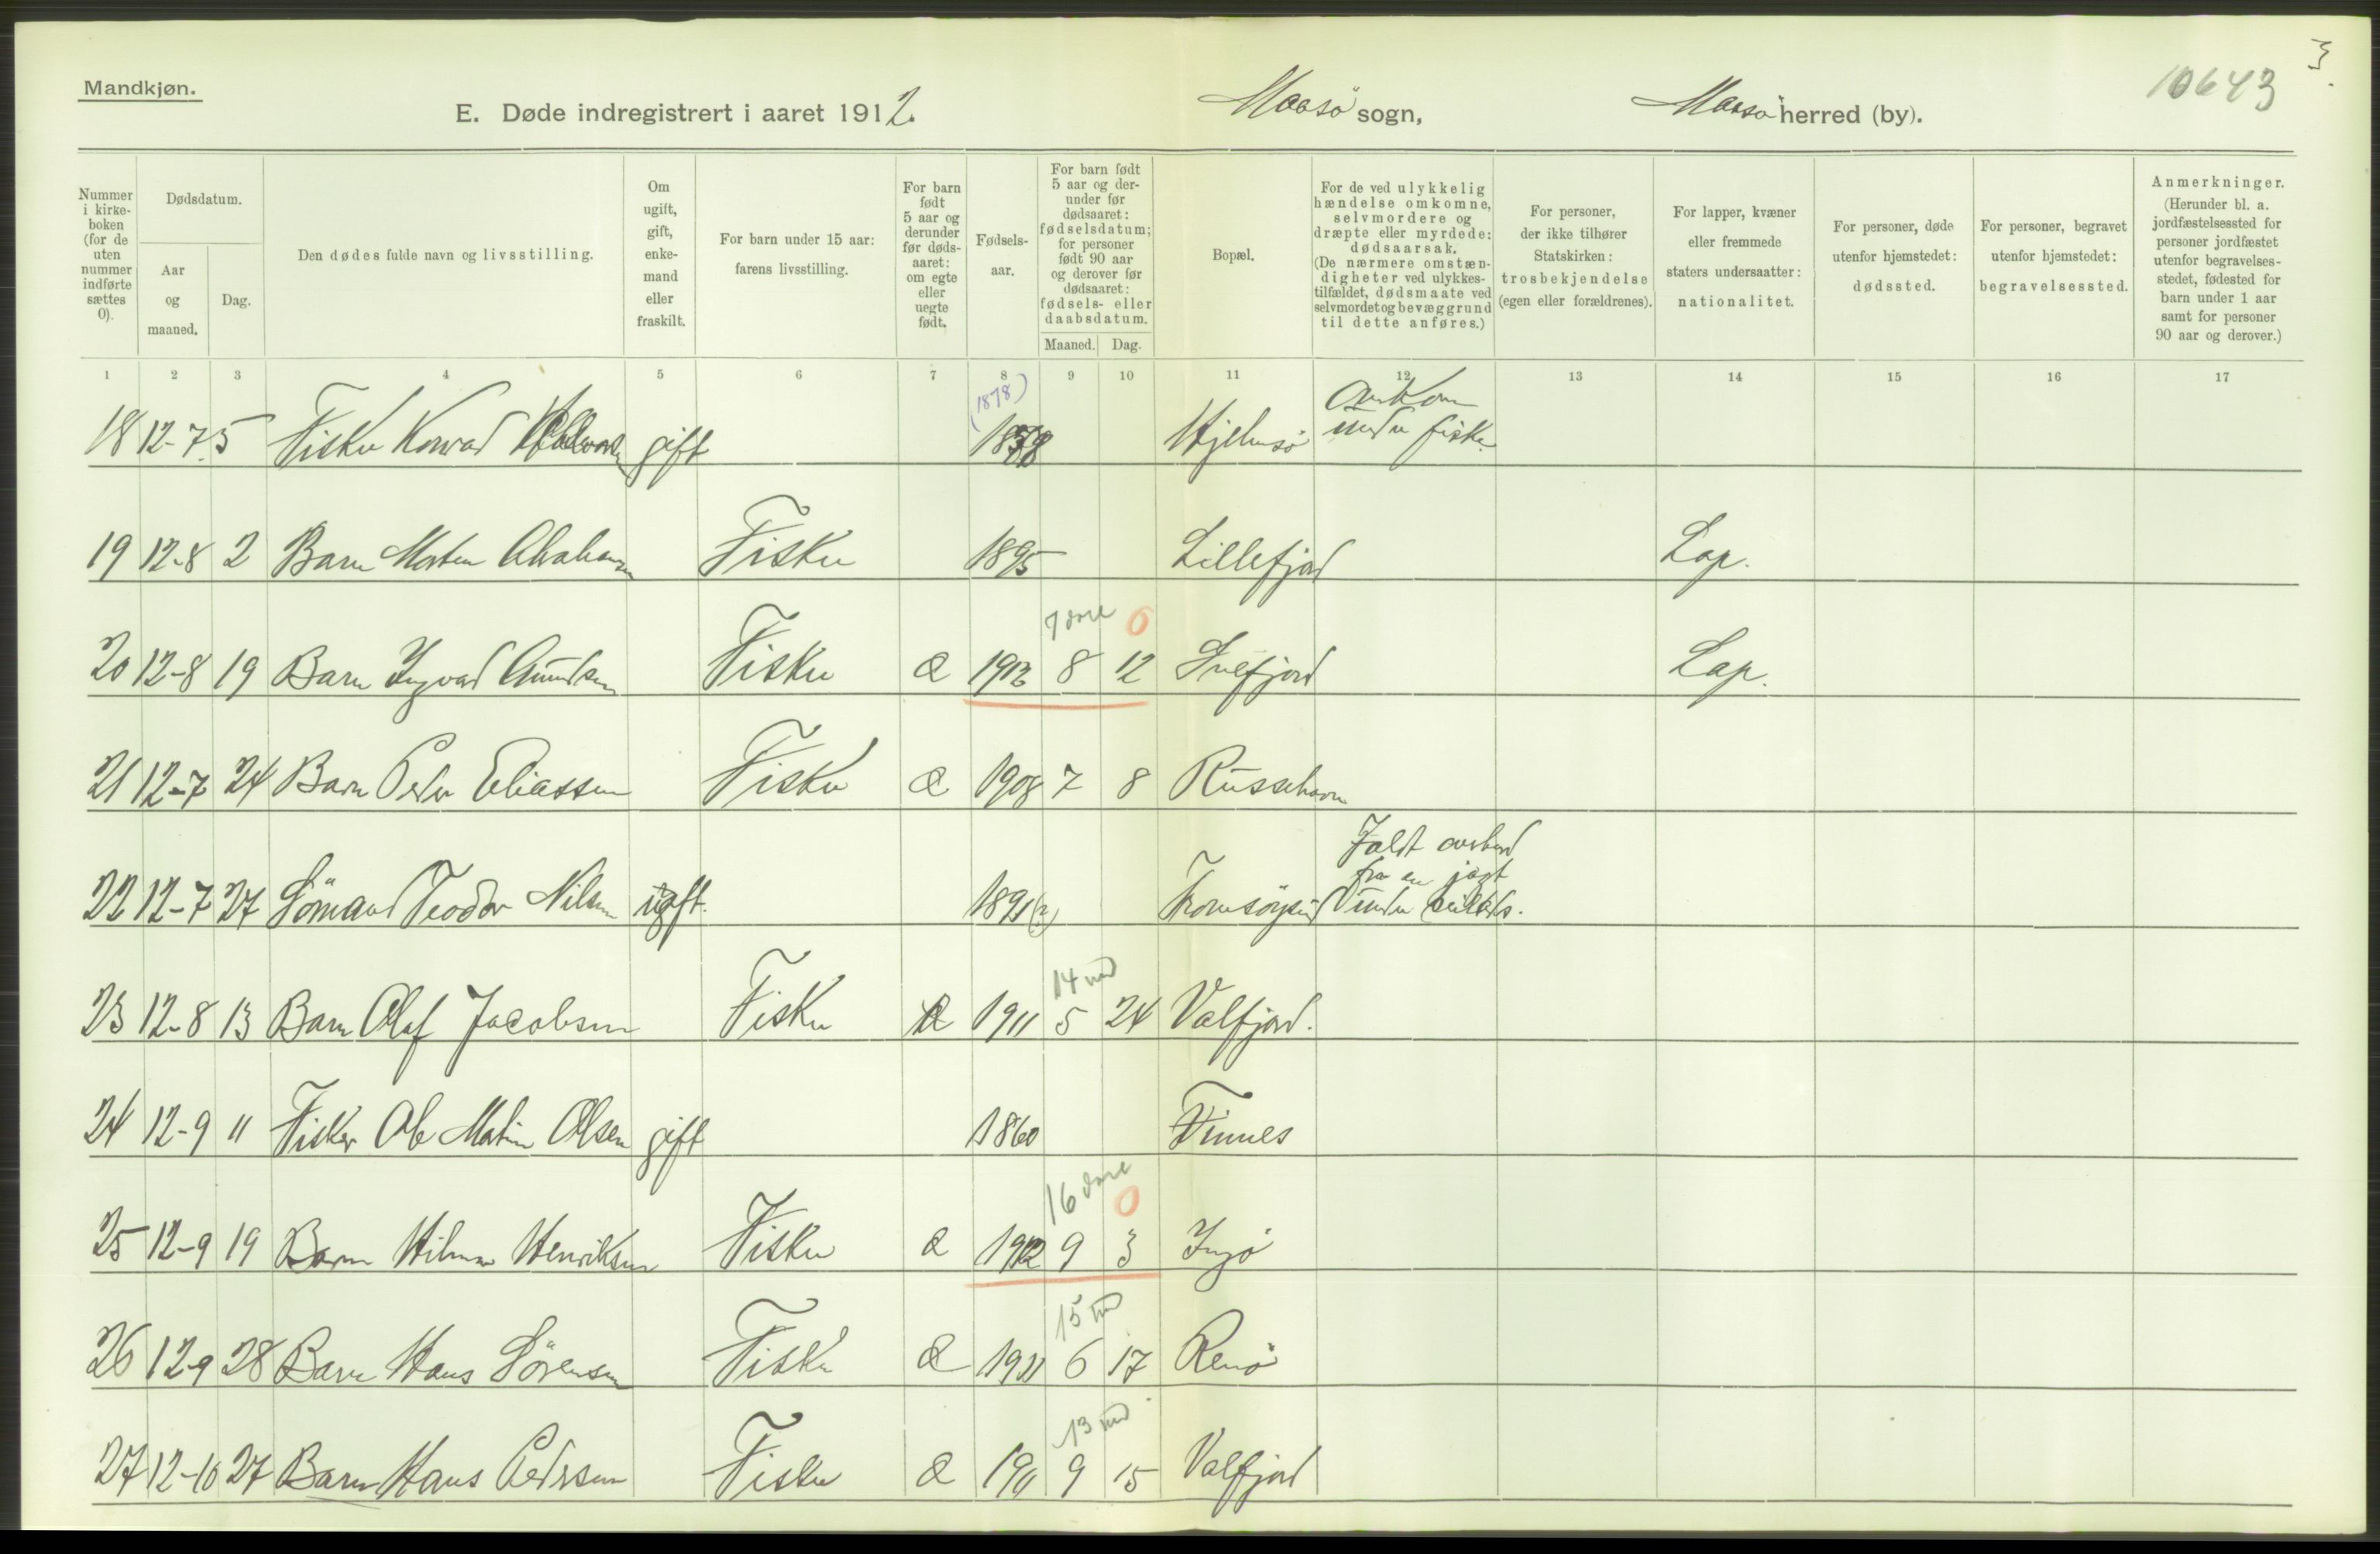 3.
10643
Mandkjøn.
E. Døde indregistrert i aaret 1912. Maasö sogn, Maasö herred (by).
Nummer i kirke-boken (for de uten nummer indførte sættes 0).
Dødsdatum.
Aar og maaned.
Dag.
Den dødes fulde navn og livsstilling.
Om ugift, gift, enke-mand eller fraskilt.
For barn under 15 aar: farens livsstilling.
For barn født 5 aar og derunder før døds-aaret: om egte eller uegte født.
Fødsels-aar.
For barn født 5 aar og der-under før dødsaaret: fødselsdatum; for personer født 90 aar og derover før dødsaaret: fødsels- eller daabsdatum.
Maaned. Dag.
Bopæl.
For de ved ulykkelig hændelse omkomne, selvmordere og dræpte eller myrdede: dødsaarsak. (De nærmere omstæn-digheter ved ulykkes-tilfældet, dødsmaate ved selvmordet og bevæggrund til dette anføres.)
For personer, der ikke tilhører Statskirken: trosbekjendelse (egen eller forældrenes).
For lapper, kvæner eller fremmede staters undersaatter: nationalitet.
For personer, døde utenfor hjemstedet: dødssted.
For personer, begravet utenfor hjemstedet: begravelsessted.
Anmerkninger. (Herunder bl. a. jordfæstelsessted for personer jordfæstet utenfor begravelses-stedet, fødested for barn under 1 aar samt for personer 90 aar og derover.)
1 2 3 4 5 6 7 8 9 10 11 12 13 14 15 16 17
(1878) Omkom
18 12-7 5 Fisker Konrad gift Hjelmsö under fiske.
19 12-8 2 Barn Morten Abrahamsen Fisker 1895 Lillefjord Lap.
7 dage 0
20 12-8 19 Barn Ingvad Amundsen Fisker e 1912 8 12 Snefjord Lap.
21 12-7 24 Barn Peder Eliassen Fisker e 1908 7 8 Russehavn
Faldt overbord
fra en jagt
22 12-7 27 Sömand Teodor Nilsen ugift. 1891 (?) Tromsöysund under seilads.
14 md
23 12-8 13 Barn Olaf Jacobsen Fisker e 1911 5 24 Valfjord.
24 12-9 11 Fisker Ole Martin Olsen gift 1860 Finnes
16 dage 0
25 12-9 19 Barn Hilmar Henriksen Fisker e 1912 9 3 Ingö
15 md
26 12-9 28 Barn Hans Sörensen Fisker e 1911 6 17 Renö
13 md
27 12-10 27 Barn Hans Pedersen Fisker e 1911 9 15 Valfjord